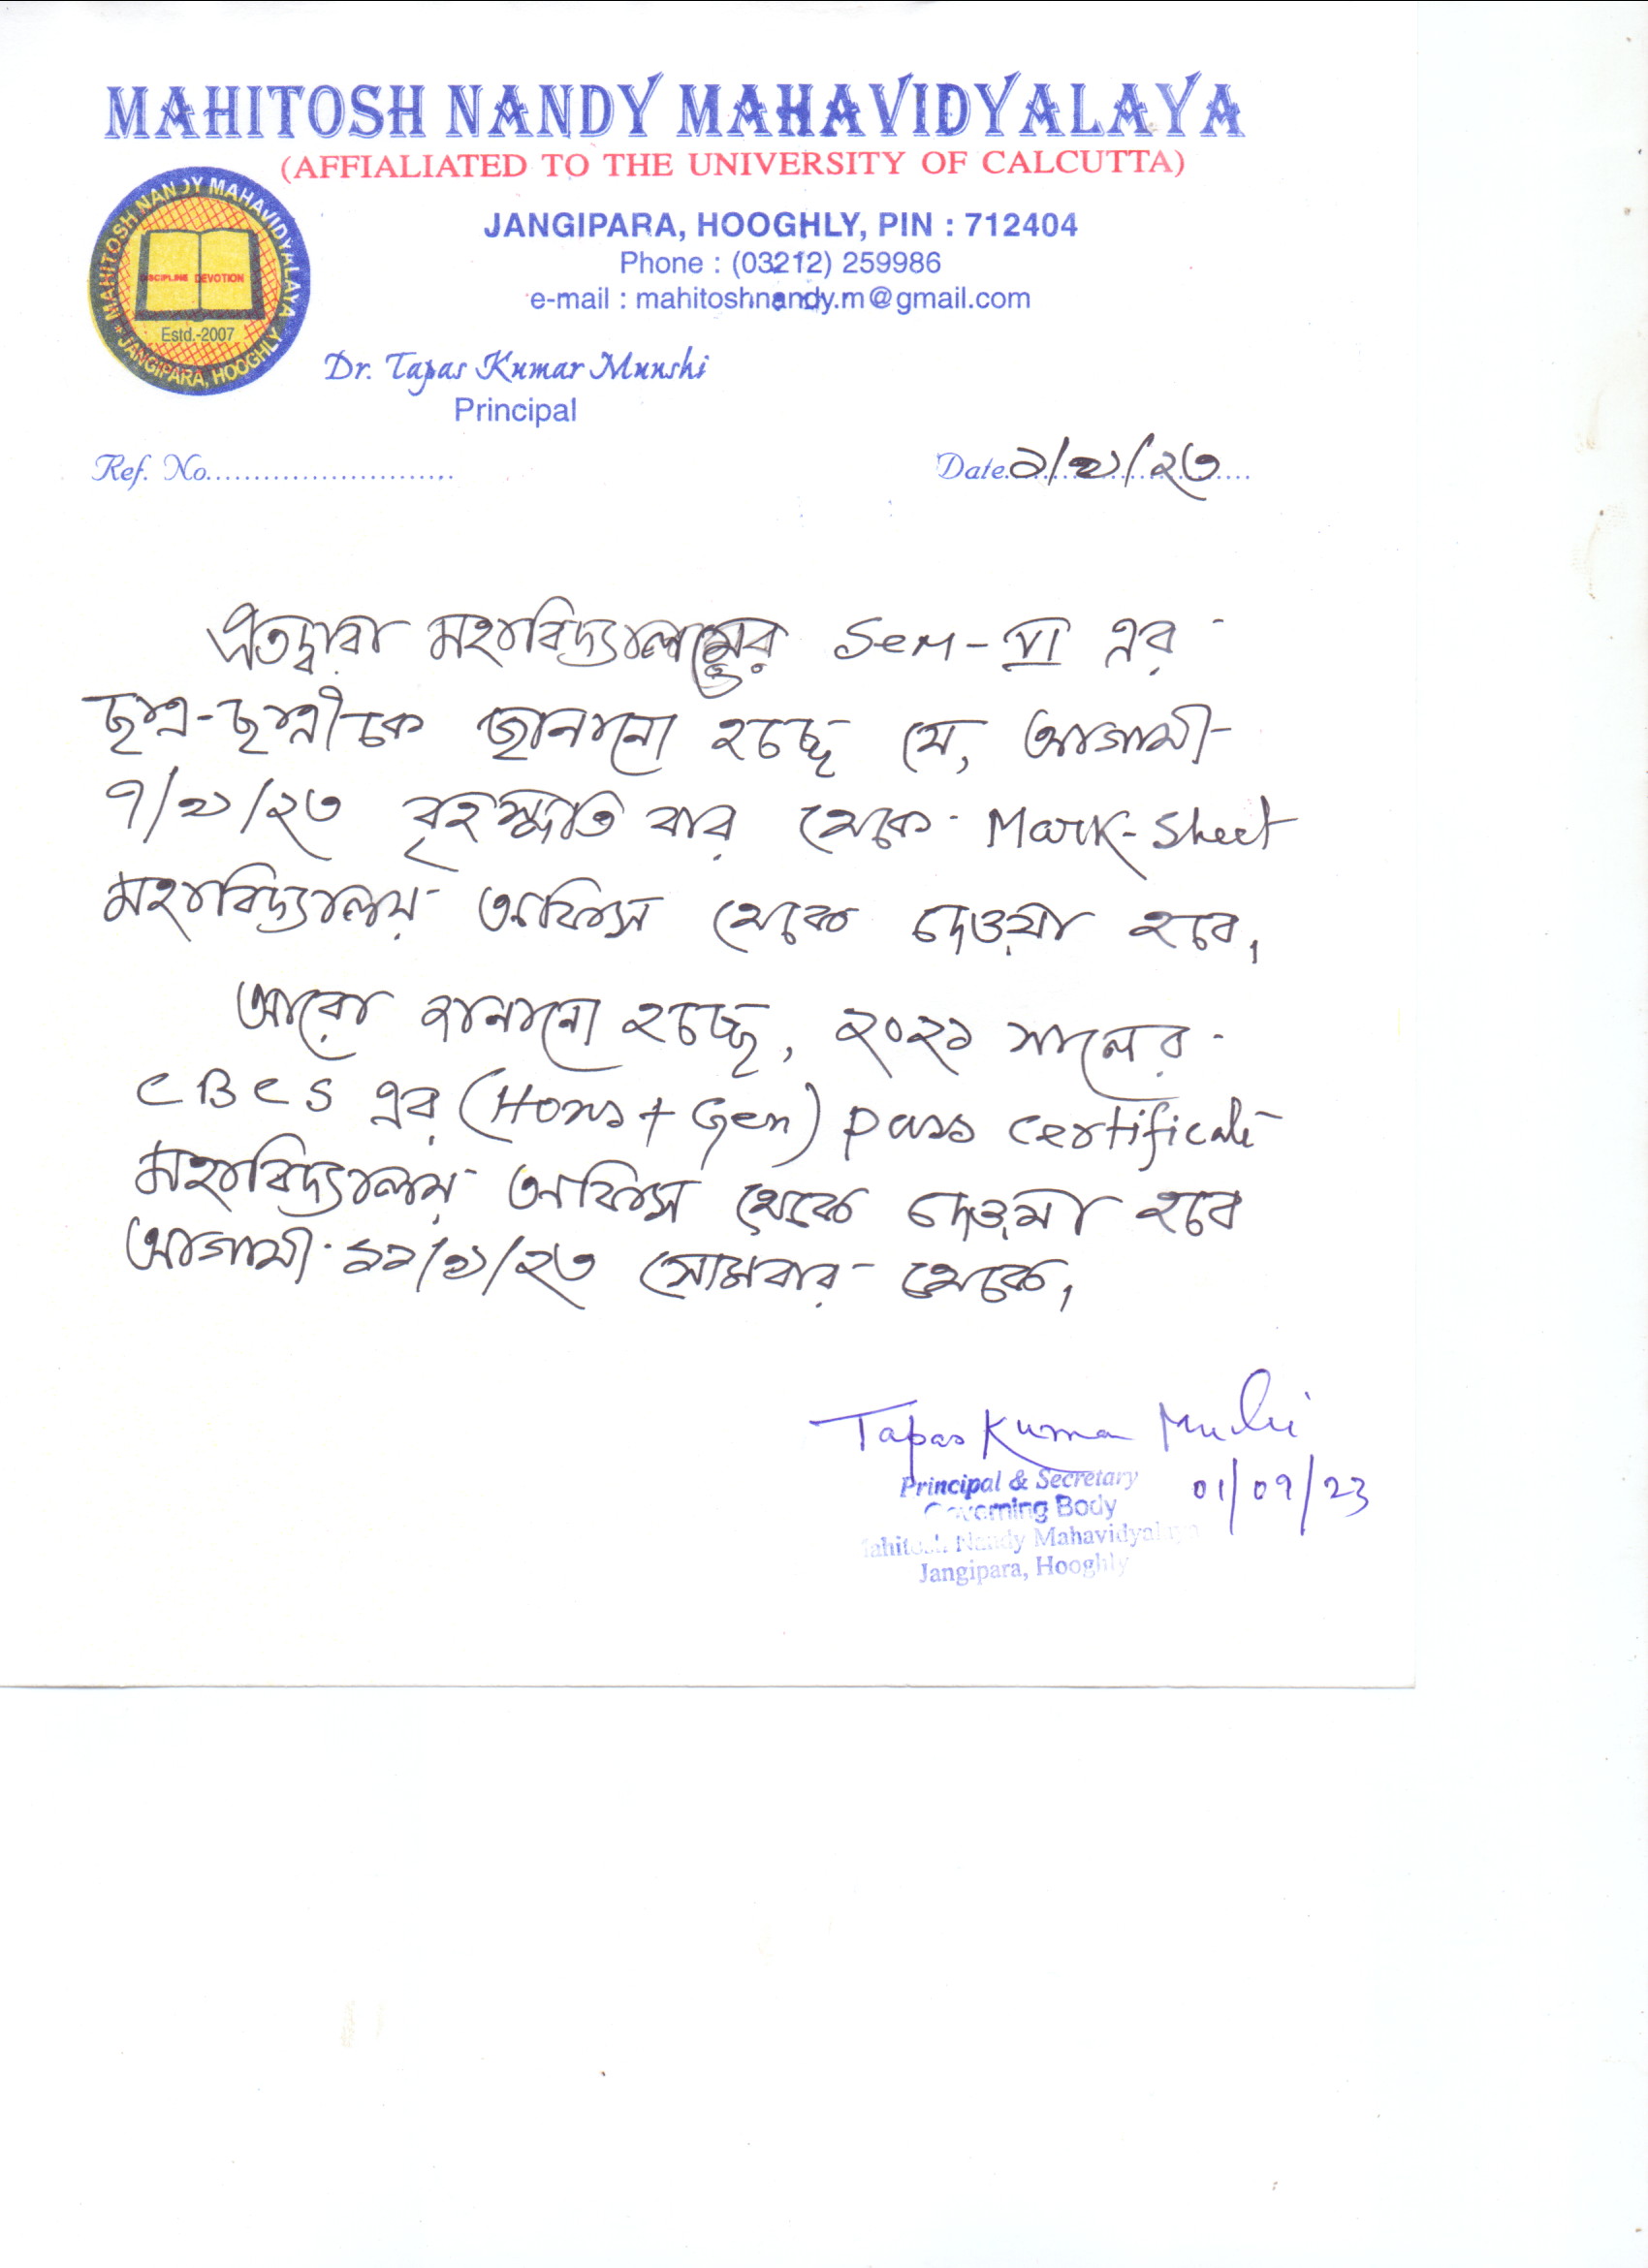 MAHITOSH NANDY MAHAVIDYALAYA
(AFFIALIATED TO THE UNIVERSITY OF CALCUTTA)
MAHITOSH NANDY MAHAVIDYALAYA
JANGIPARA, HOOGHLY
DISCIPLINE DEVOTION
Estd.-2007
JANGIPARA, HOOGHLY, PIN : 712404
Phone : (03212) 259986
e-mail : mahitoshnandy.m@gmail.com
Dr. Tapas Kumar Munshi
Principal
Ref. No.
Date ১/৯/২৩
এতদ্বারা মহাবিদ্যালয়ের Sem-VI এর
ছাত্র-ছাত্রীকে জানানো হচ্ছে যে, আগামী
৭/৯/২৩ বৃহস্পতি বার থেকে Mark-Sheet
মহাবিদ্যালয় অফিস থেকে দেওয়া হবে।
আরো জানানো হচ্ছে, ২০২১ সালের
CBCS এর (Hons + Gen) pass certificate
মহাবিদ্যালয় অফিস থেকে দেওয়া হবে
আগামী ১১/৯/২৩ সোমবার থেকে।
Tapas Kumar Munshi
01/09/23
Principal & Secretary
Governing Body
Mahitosh Nandy Mahavidyalaya
Jangipara, Hooghly